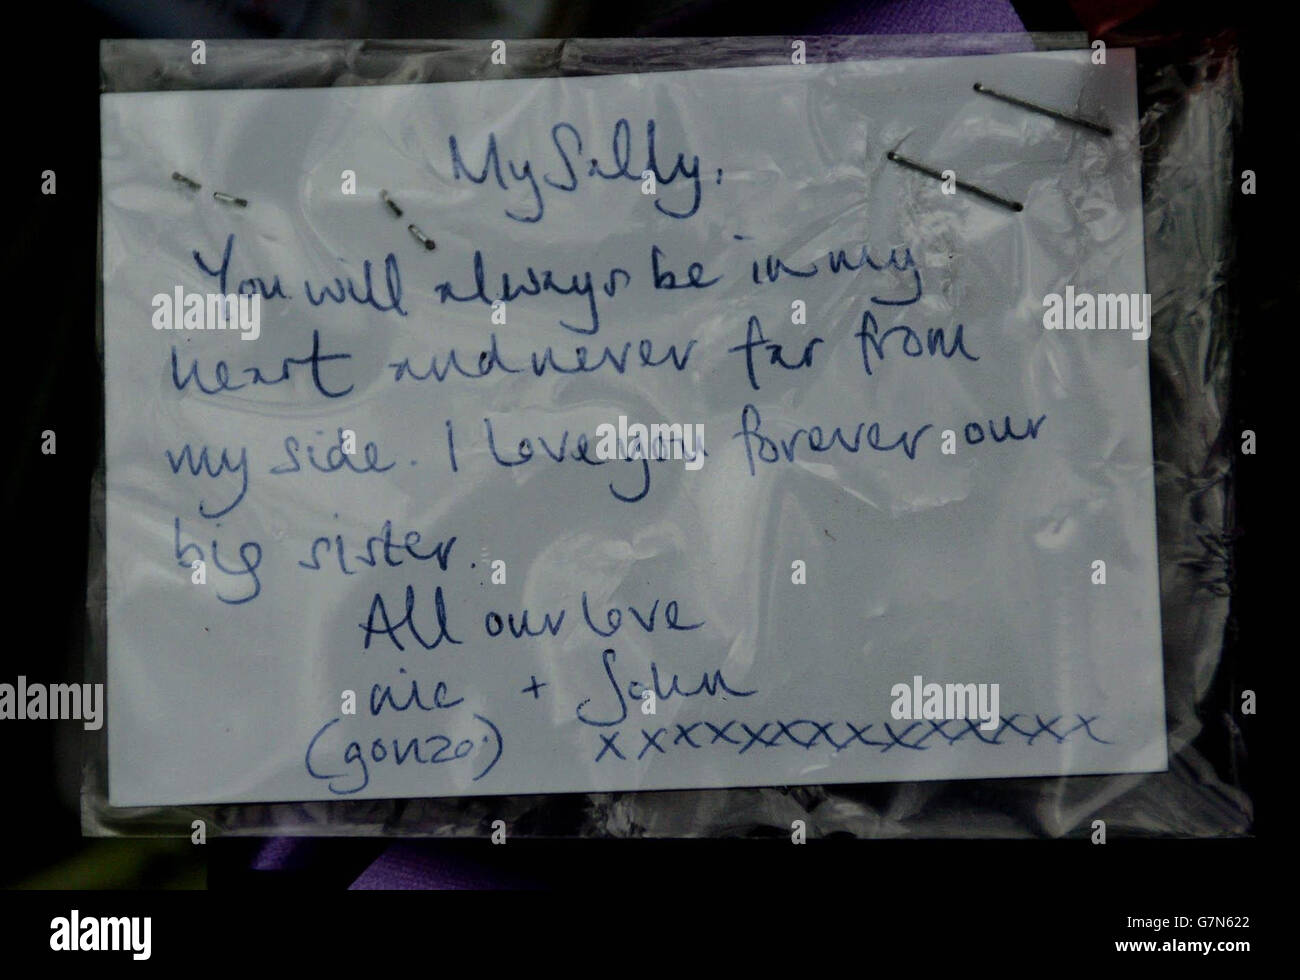 My Sally.
You will always be in my
heart and never far from
my side. I love you forever our
big sister.
All our love
nic + John
(gonzo) xxxxxxxxxxxxxx
alamy
Image ID: G7N622
www.alamy.com